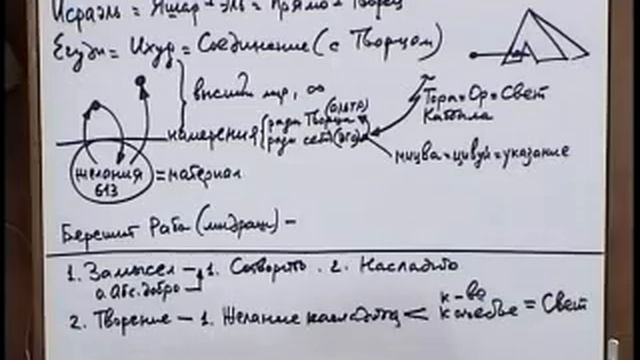 Исраэль = Яшар - Эль = Прямо - Творец
Егуди = Ихуд = Соединение (с Творцом)
высший мир, ∞
намерения
ради Творца (альтр)
ради себя (эго)
Тора = Ор = Свет
Каббала
мицва = цивуй = указание
желания = материал
613
Берешит Раба (мидраш) -
1. Замысел - 1. Сотворить . 2. Насладить
а. Абс. добро
2. Творение - 1. Желание насладиться < к-во качество = Свет